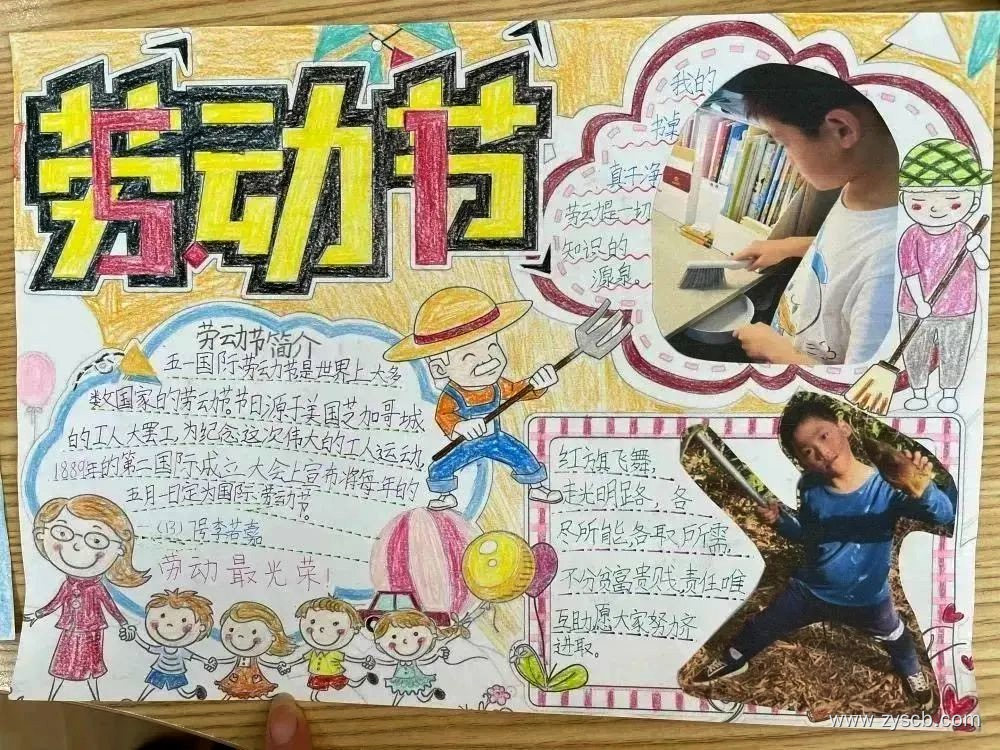 劳动节
5.1
我的
书桌
真干净
劳动是一切
知识的
源泉。
劳动节简介
五一国际劳动节是世界上大多
数国家的劳动节。节日源于美国芝加哥城
的工人大罢工,为纪念这次伟大的工人运动,
1889年的第二国际成立大会上宣布将每年的
五月一日定为国际劳动节。
劳动最光荣!
红旗飞舞,
走光明路,各
尽所能,各取所需,
不分贫富贵贱,责任唯
互助愿大家努力齐
进取。
www.zyscb.com